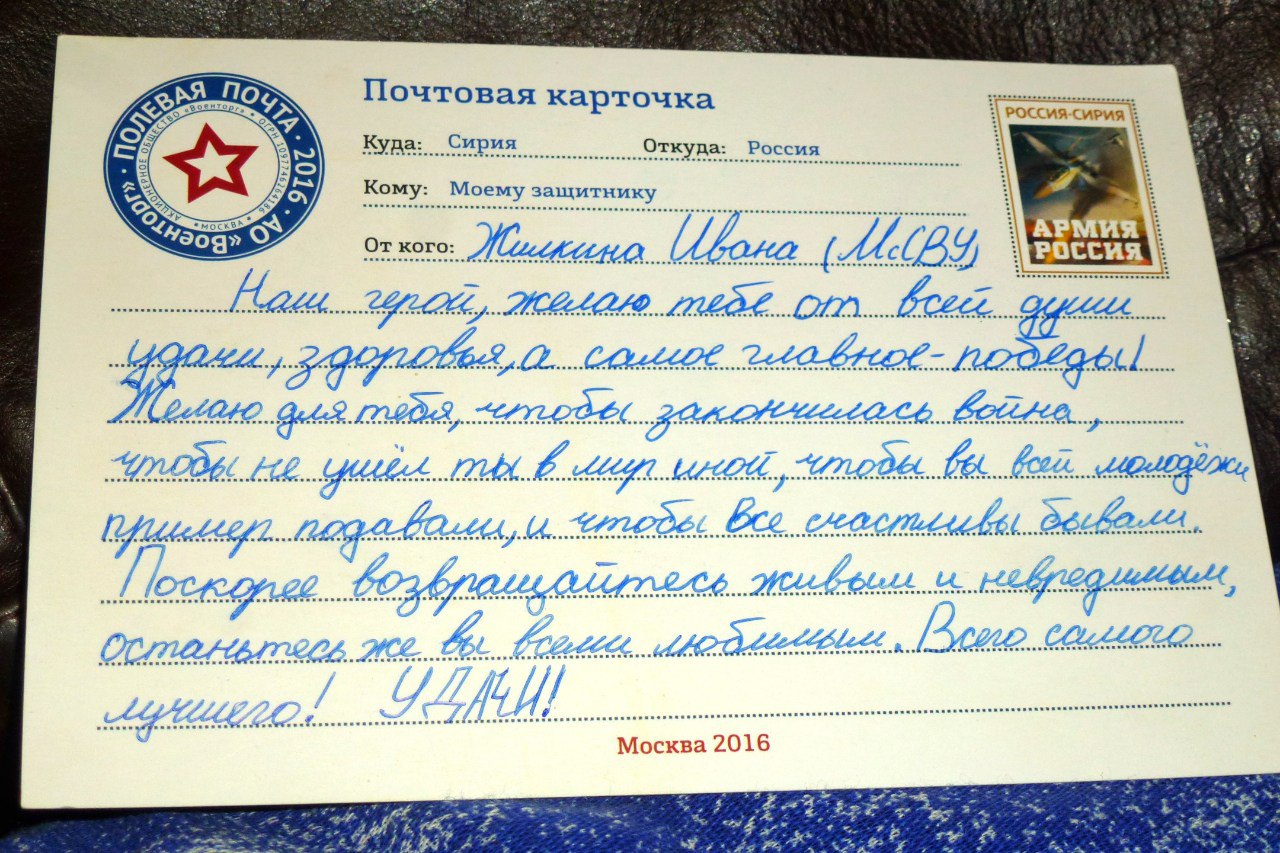 ПОЛЕВАЯ ПОЧТА · 2016 · АО «Военторг» ·
АКЦИОНЕРНОЕ ОБЩЕСТВО «Военторг» * ОГРН 1097746264186 * МОСКВА *
Почтовая карточка
РОССИЯ-СИРИЯ
АРМИЯ
РОССИЯ
Куда: Сирия Откуда: Россия
Кому: Моему защитнику
От кого: Жилкина Ивана (МсСВУ)
Наш герой, желаю тебе от всей души
удачи, здоровья, а самое главное- победы!
Желаю для тебя, чтобы закончилась война,
чтобы не ушёл ты в мир иной, чтобы вы всей молодёжи
пример подавали, и чтобы все счастливы бывали.
Поскорее возвращайтесь живым и невредимым,
останьтесь же вы всеми любимым. Всего самого
лучшего! УДАЧИ!
Москва 2016